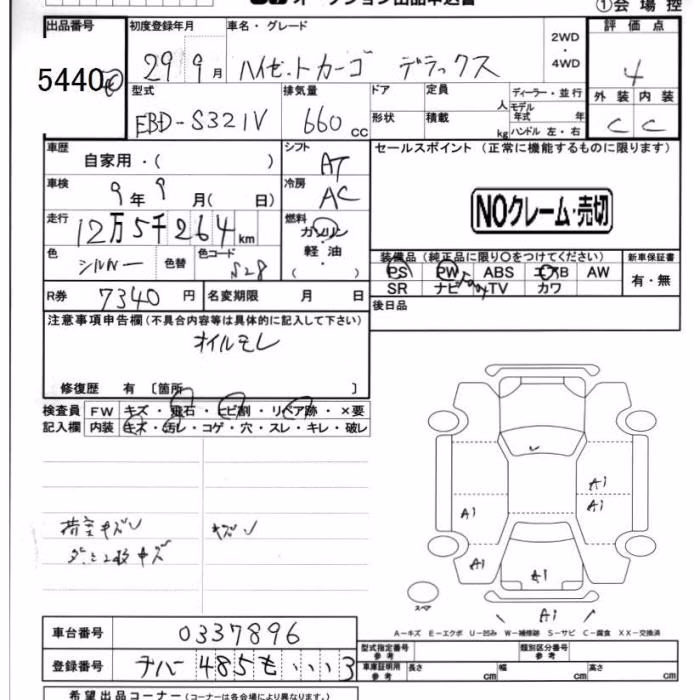 オークション出品申込書
①会場控
出品番号 初度登録年月 車名・グレード 2WD ・ 4WD 評価点
5440 29年9月 ハイゼットカーゴ デラックス 4
型式 排気量 ドア 定員 人 ディーラー・並行 外装 内装
EBD-S321V 660cc 形状 積載 kg モデル年式 年 ハンドル 左・右 C C
車歴 自家用・( ) シフト AT セールスポイント (正常に機能するものに限ります)
車検 9年9月( 日) 冷房 AC
NOクレーム・売切
走行 12万5千264km 燃料 ガソリン 軽油 ( )
色 シルバー 色替 色コード S28
装備品 (純正品に限り○をつけてください) 新車保証書
PS PW ABS エアB AW 有・無
SR ナビ TV カワ
R券 7340円 名変期限 月 日 後日品
注意事項申告欄 (不具合内容等は具体的に記入して下さい)
オイルモレ
修復歴 有 〔箇所 〕
検査員 FW キズ・飛石・ヒビ割・リペア跡・×要
記入欄 内装 キズ・汚レ・コゲ・穴・スレ・キレ・破レ
A1 A1
A1
キズ
A1 A1
A1
スペア
A-キズ E-エクボ U-凹み W-補修跡 S-サビ C-腐食 XX-交換済
車台番号 0337896
型式指定番号 参考 類別区分番号 参考
登録番号 485も・・・3
車庫証明用 参考 長さ cm 幅 cm 高さ cm
希望出品コーナー (コーナーは各会場により異なります。)